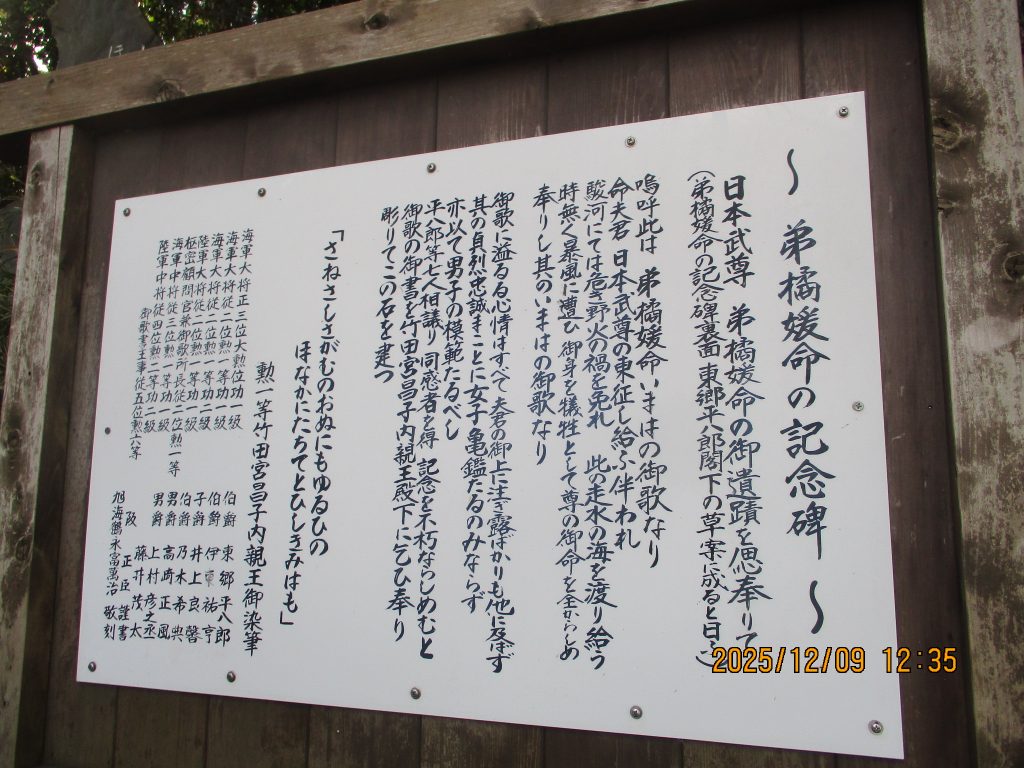 ～ 弟橘媛命の記念碑 ～
日本武尊 弟橘媛命の御遺蹟を偲奉りて
(弟橘媛命の記念碑裏面 東郷平八郎閣下の草案に成ると曰ふ)
嗚呼此は 弟橘媛命いまはの御歌なり
命夫君 日本武尊の東征し給ふ伴われ
駿河にては危き野火の禍を免れ 此の走水の海を渡り給う
時無く暴風に遭ひ 御身を犠牲として尊の御命を全からしめ
奉りし其のいまはの御歌なり
御歌に溢るる心情はすべて夫君の御上に注ぎ露ばかりも他に及ぼず
其の貞烈忠誠まことに女子亀鑑たるのみならず
亦以て男子の模範たるべし
平八郎等七人相議り 同感者を得 記念を不朽ならしめむと
御歌の御書を竹田宮昌子内親王殿下に乞ひ奉り
彫りてこの石を建つ
「さねさしさがむのおぬにもゆるひの
ほなかにたちてとひしきみはも」
勲一等竹田宮昌子内親王御染筆
海軍大将正三位大勲位功一級 伯爵 東郷平八郎
海軍大将従二位勲一等功一級 伯爵 伊東祐亨
海軍大将従二位勲一等功二級 子爵 井上良馨
陸軍大将従二位勲一等功一級 伯爵 乃木希典
枢密顧問官兼御歌所長従二位勲一等 男爵 高崎正風
海軍中将従三位勲一等功一級 男爵 上村彦之丞
陸軍中将従四位勲二等功二級 藤井茂太
御歌書主事従五位勲六等 阪正臣謹書
旭海鶴木富萬治 敬刻
2025/12/09 12:35